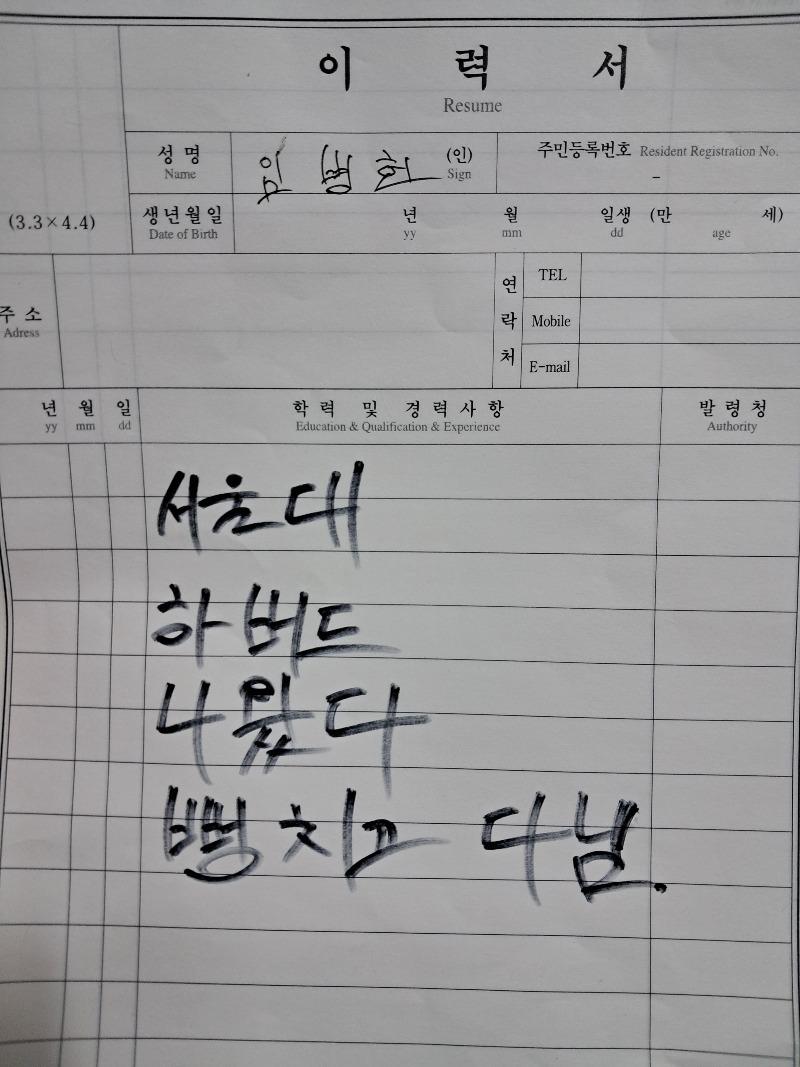 이 력 서
Resume
성 명 임 범 헌 (인) 주민등록번호 Resident Registration No.
Name Sign -
(3.3×4.4) 생년월일 년 월 일생 (만 세)
Date of Birth yy mm dd age
주 소 연락처 TEL
Adress Mobile
E-mail
년 월 일 학 력 및 경 력 사 항 발 령 청
yy mm dd Education & Qualification & Experience Authority
서울대
하버드
나왔다
뻥치고 다님.